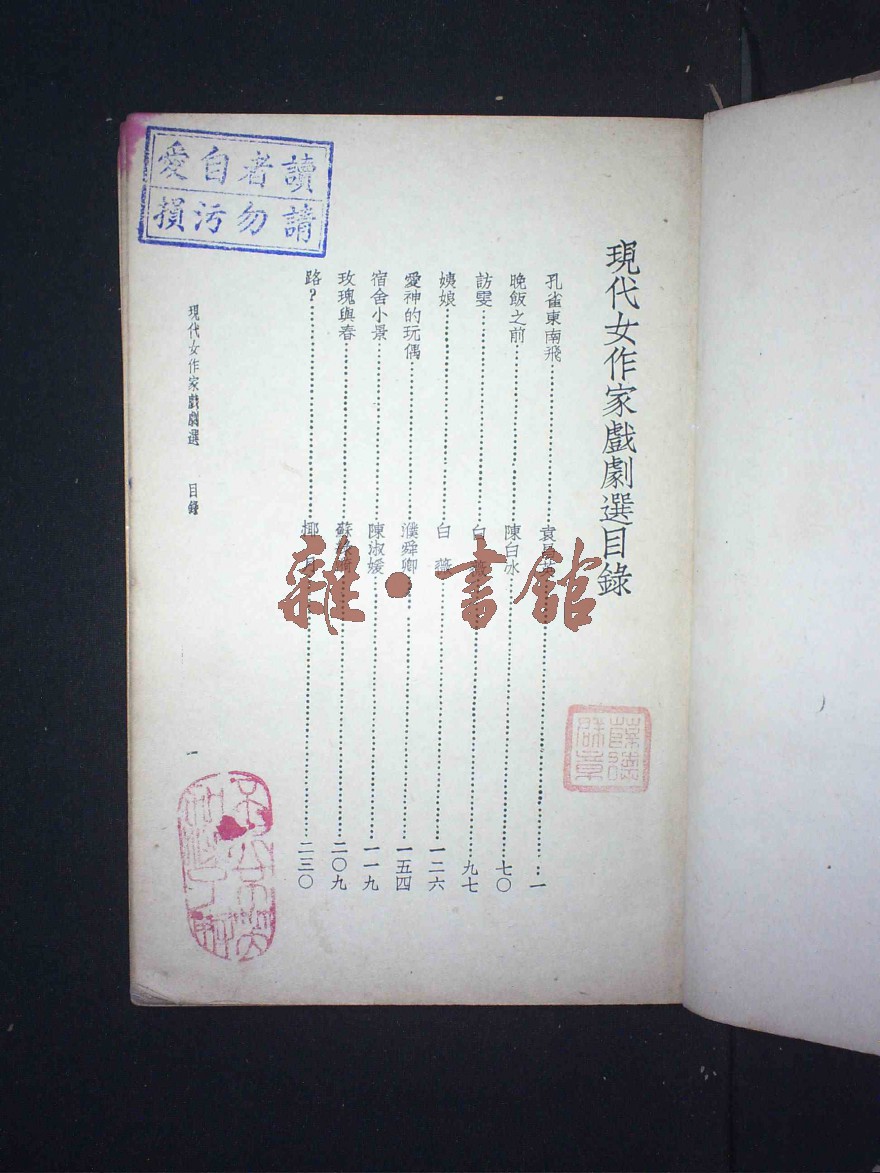 讀者自愛
請勿污損
現代女作家戲劇選目錄
孔雀東南飛……袁昌英……一
晚飯之前……陳白冰……七〇
訪雯……白薇……九七
姨娘……白薇……一二六
愛神的玩偶……濮舜卿……一五四
宿舍小景……陳淑媛……一一九
玫瑰與春……蘇……二〇九
路？……月……二三〇
現代女作家戲劇選 目錄
一
雜·書館